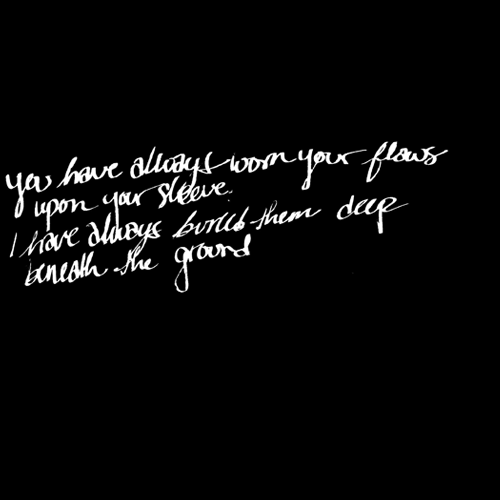 you have always worn your flaws
upon your sleeve.
I have always buried them deep
beneath the ground